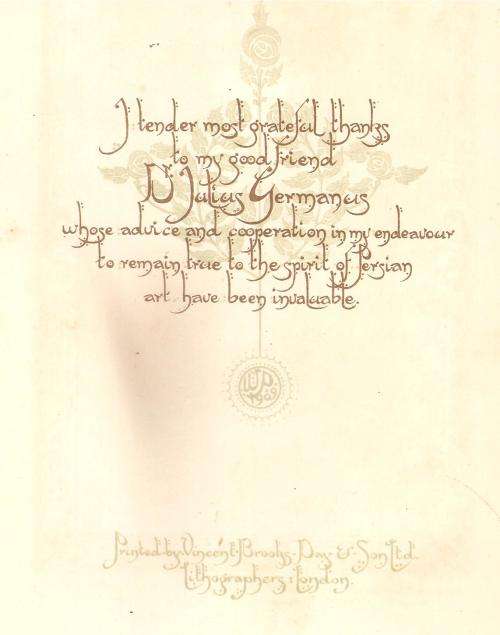 I tender most grateful thanks
to my good friend
Dr Julius Germanus
whose advice and cooperation in my endeavour
to remain true to the spirit of Persian
art have been invaluable.
1909
Printed by Vincent Brooks Day & Son Ltd.
Lithographers: London.